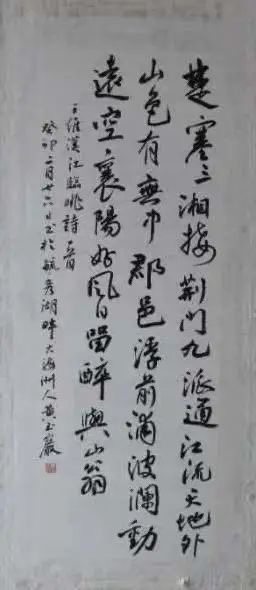 楚塞三湘接荊門九派通江流天地外
山色有無中郡邑浮前浦波瀾動
遠空襄陽好風日留醉與山翁
王維漢江臨眺詩一首
癸卯二月廿六日书於毓秀湖畔大洲人黄玉巖